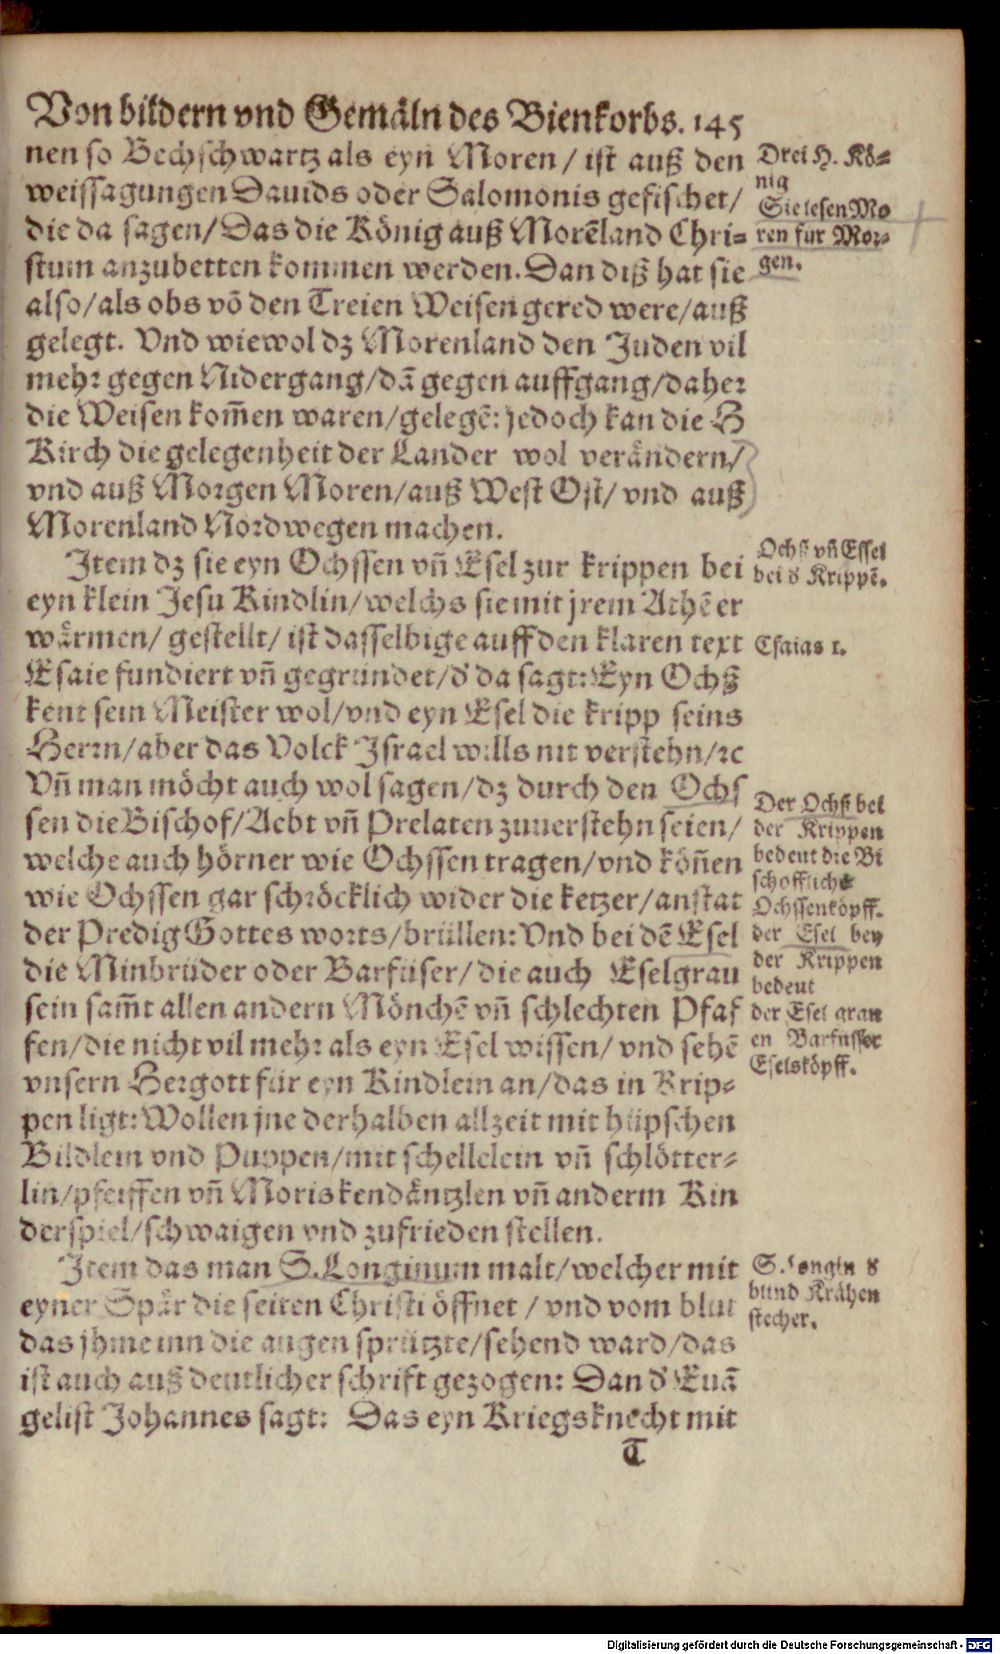 Von bildern vnd Gemäln des Bienkorbs. 145
nen so Bechschwartz als eyn Moren / ist auß den
weissagungen Dauids oder Salomonis gefischet/
die da sagen/Das die König auß Morēland Chri-
stum anzubetten kommen werden. Dan diß hat sie
also/als obs vō den Treien Weisen gered were/auß
gelegt. Vnd wiewol dz Morenland den Juden vil
mehr gegen Nidergang/dā gegen auffgang/daher
die Weisen kom̄en waren/gelegē: jedoch kan die H
Kirch die gelegenheit der Lander wol verändern/
vnd auß Morgen Moren/auß West Ost/ vnd auß
Morenland Nordwegen machen.
Item dz sie eyn Ochssen vn̄ Esel zur krippen bei
eyn klein Jesu Kindlin/welchs sie mit jrem Athē er
wärmen/ gestellt/ ist dasselbige auff den klaren text
Esaie fundiert vn̄ gegründet/d' da sagt: Eyn Ochß
kent sein Meister wol/vnd eyn Esel die kripp seins
Herrn/aber das Volck Israel wills nit verstehn/ꝛc
Vn̄ man möcht auch wol sagen/dz durch den Ochs
sen die Bischof/Aebt vn̄ Prelaten zuuerstehn seien/
welche auch hörner wie Ochssen tragen/vnd kön̄en
wie Ochssen gar schröcklich wider die ketzer/anstat
der Predig Gottes worts/brüllen: Vnd bei dē Esel
die Minbrüder oder Barfüser/die auch Eselgrau
sein sam̄t allen andern Mönchē vn̄ schlechten Pfaf
fen/die nicht vil mehr als eyn Esel wissen/ vnd sehē
vnsern Hergott für eyn Kindlein an/das in Krip-
pen ligt: Wollen jne derhalben allzeit mit hüpschen
Bildlein vnd Puppen/mit schellelein vn̄ schlötter-
lin/pfeiffen vn̄ Moriskendäntzlen vn̄ anderm Kin
derspiel/schwaigen vnd zufrieden stellen.
Item das man S. Longinum malt/welcher mit
eyner Spär die seiten Christi öffnet / vnd vom blut
das jhme inn die augen sprützte/sehend ward/das
ist auch auß deutlicher schrift gezogen: Dan d' Euā
gelist Johannes sagt: Das eyn Kriegsknecht mit
T
Drei H. Kö-
nig
Sie lesen Mo
ren für Mor-
gen.
Ochß vn̄ Essel
bei d' Krippē.
Esaias 1.
Der Ochß bei
der Krippen
bedeut die Bi
schoffliche
Ochssenköpff.
der Esel bey
der Krippen
bedeut
der Esel grau
en Barfüsser
Eselsköpff.
S. Longin d'
blind Krähen
stecher.
Digitalisierung gefördert durch die Deutsche Forschungsgemeinschaft - DFG